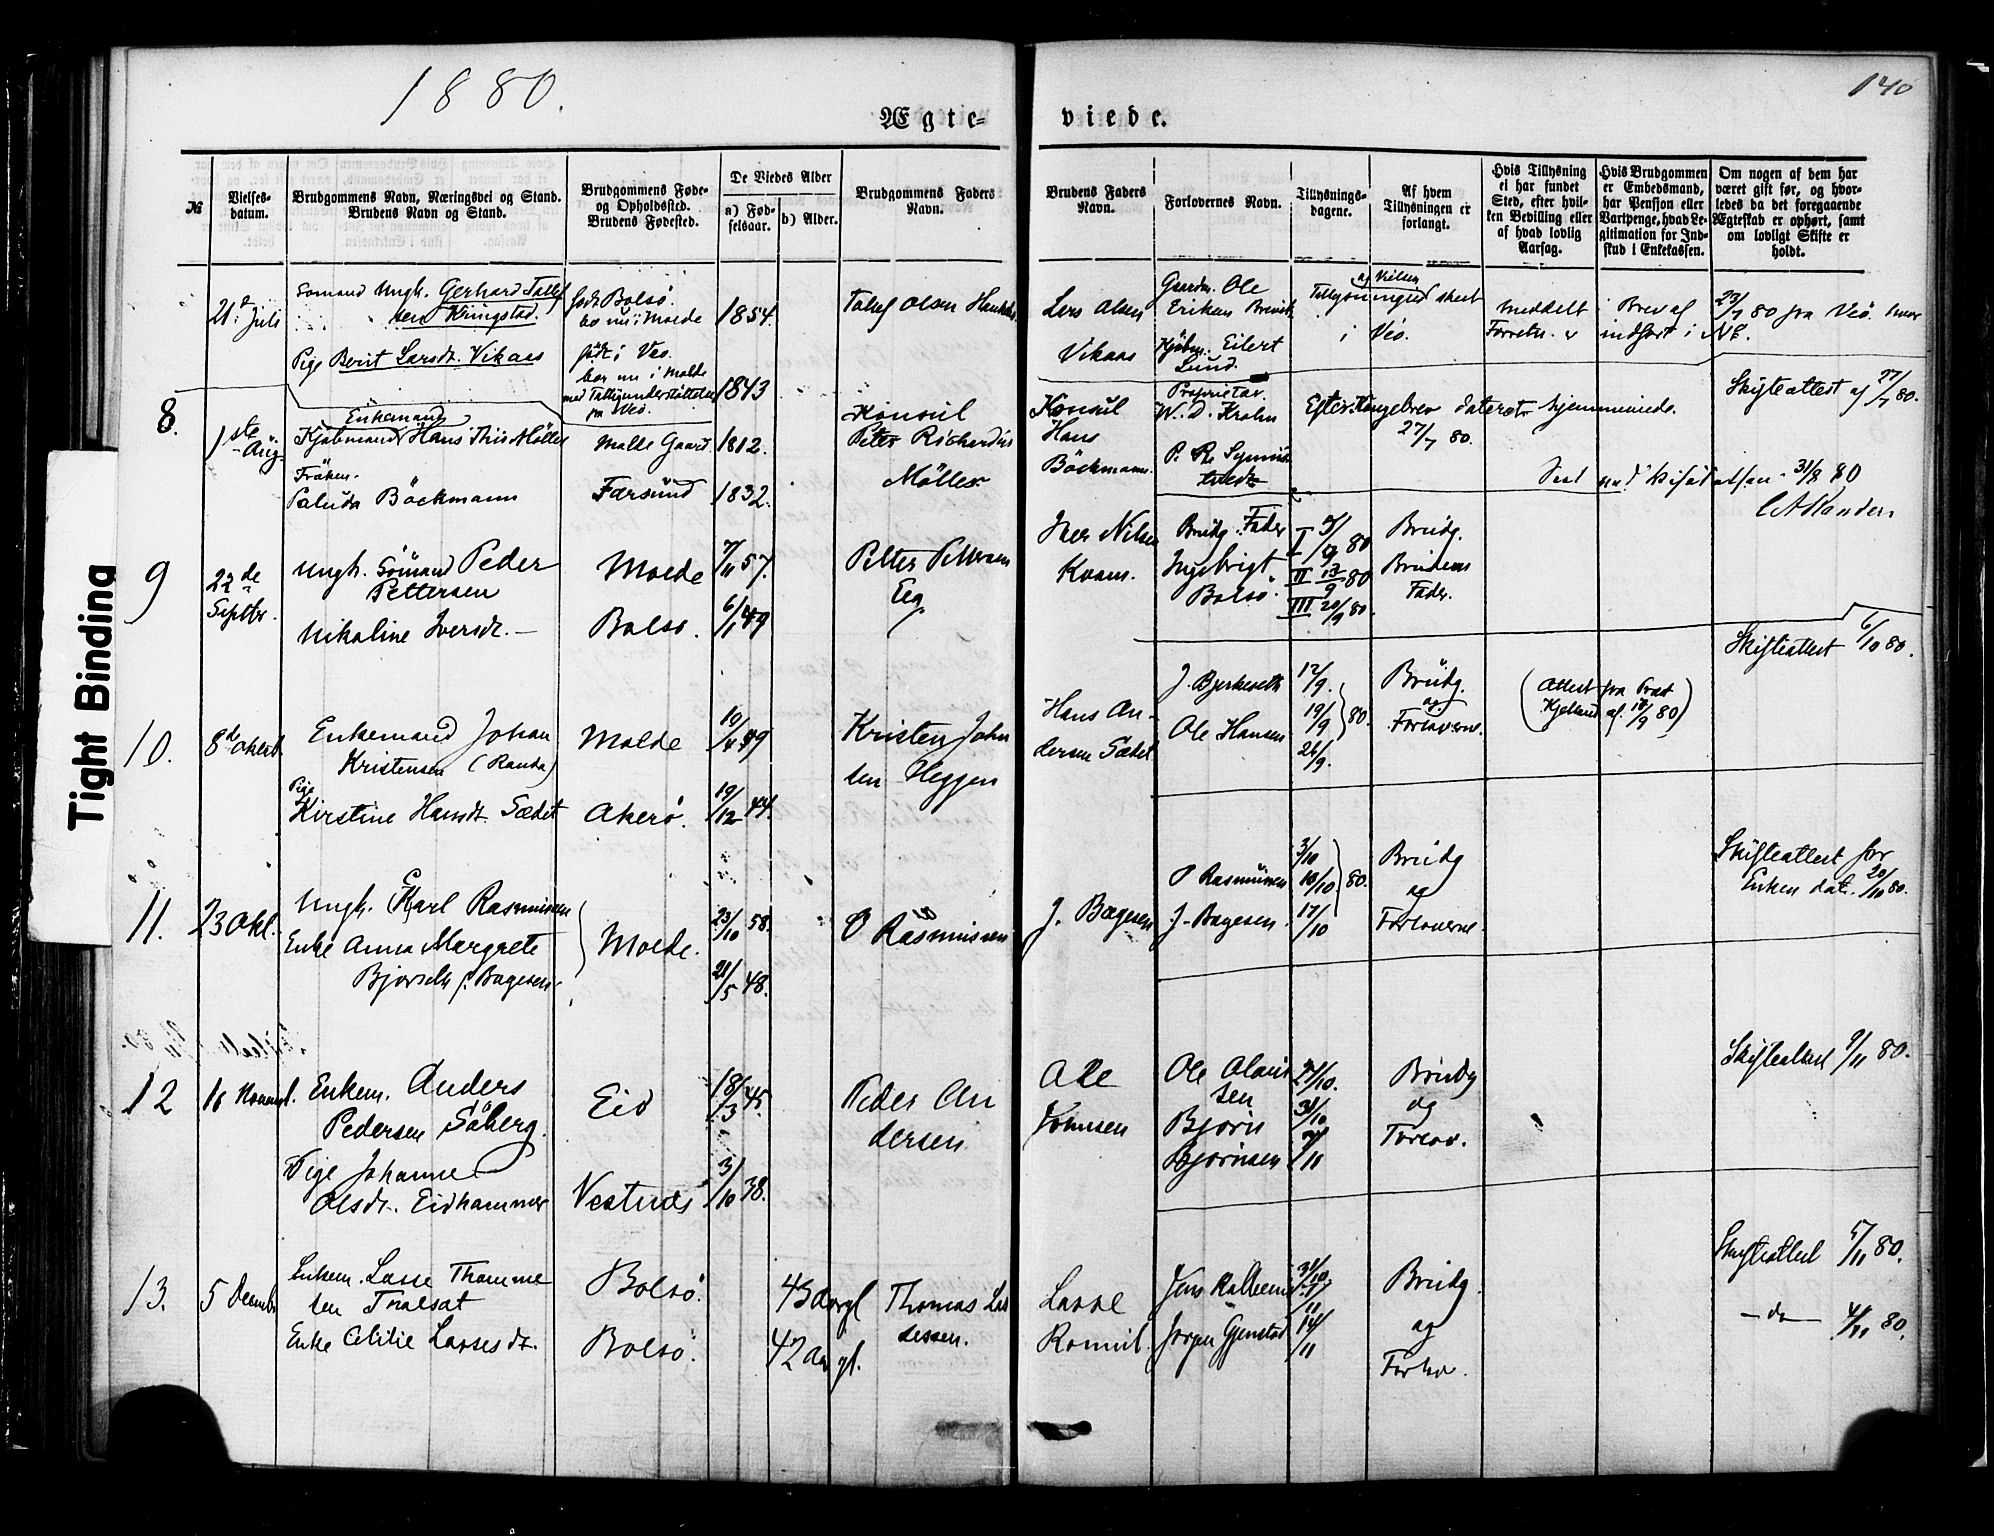 1880.
140
Ægte-
viede.
№
Vielses-
datum.
Brudgommens Navn, Næringsvei og Stand.
Brudens Navn og Stand.
Brudgommens Føde-
og Opholdssted.
Brudens Fødested.
De Viedes Alder
a) Fød-
selsaar.
b) Alder.
Brudgommens Faders
Navn.
Brudens Faders
Navn.
Forlovernes Navn.
Tillysnings-
dagene.
Af hvem
Tillysningen er
forlangt.
Hvis Tillysning
ei har fundet
Sted, efter hvil-
ken Bevilling eller
af hvad lovlig
Aarsag.
Hvis Brudgommen
er Embedsmand,
har Pensjon eller
Vartpenge, hvad Le-
gitimation for Ind-
skud i Enkekassen.
Om nogen af dem har
været gift før, og hvor-
ledes da det foregaaende
Ægteskab er ophørt, samt
om lovligt Skifte er
holdt.
21de Juli
Sømand Ungk. Gerhard Tollef
sen Kringstad.
Pige Berit Larsdt. Vikaas
født Bolsø.
bor nu i Molde
født i Veø.
bor nu i Molde
med Fattigunderstøttelse
fra Veø.
1854.
1843
Lars Olsen
Vikaas
Gaardm. Ole
Eriksen Brevik
Kjøbm. Eilert
Lund.
og Vielsen
i Veø.
meddelt
Brev af
23/7 80 fra Veø. hvor
Forretn. er
indført i
8.
1ste Aug.
Enkemand
Kjøbmand Hans Thiis Møller
Frøken
Paluda Böckmann
Molde Gaard
Farsund
1812.
1832.
Konsul
Peter Richardus
Møller
Konsul
Hans
Böckmann.
Proprietær
W. D. Krohn
Efter Kongebrev dateret hjemmeviede.
27/7 80.
Skifteattest af 27/7 80.
31/8 80
9
22de
Septbr.
Ungk. Sömand Peder
Pettersen
Nikoline Iversdt. —
Molde
Bolsø.
7/11 57.
6/1 49
Petter Pettersen
Eeg
Iver Nilsen
Kvam.
Brudg. Fader
Ingebrigt
Bolsø.
I 5/9 80
II 13/9 80
III 20/9 80.
Brudg.
Brudens
Fader.
10.
8de Oktob.
Enkemand Johan
Kristensen (Randa)
Pige
Kirstine Hansdt. Sædet
Molde
Akerø.
19/4 49
19/12 44.
Kristen John
sen Heggen
Hans An-
dersen Sædet
J. Bjerkeseth
Ole Hansen
12/9.
19/9
26/9.
80.
Brudg.
og
Forloverne.
(Attest fra Præst
Kjelland af 18/9 80)
Skifteattest 6/10 80.
11.
23 Okt.
Ungk. Karl Rasmussen
Enke Anna Margrete
Bjørseth f. Bagesen
Molde.
23/10 58.
21/5 48.
O Rasmussen
J. Bagesen
O Rasmussen
J. Bagesen
3/10
10/10
17/10
80.
Brudg
og
Forloverne.
Skifteattest for
Enken dat. 20/10 80.
12
16 Novemb.
Enkem. Anders
Pedersen Söberg.
Pige Johanne
Olsdt. Eidhammer
Eid
Vestnæs
18/3 45.
3/10 38.
Peder An
dersen
Ole
Johnsen
Ole Olaus
sen
Bjørn
Bjørnsen
24/10.
31/10
7/11
Brudg
og
Forlov.
Skifteattest 9/11 80.
13.
5 Decmb.
Enkem. Lasse Thomme
sen Tralsat
Enke Cecilie Lassesdt.
Bolsø.
Bolsø.
43 Aar gl
42 Aar gl.
Thomas Las
sessen.
Lasse
Jens Kalheim
Jørgen Gjenstad
31/10
7/11
14/11
Brudg.
og
Forlov.
Skifteattest 5/11 80.
— do — 4/11 80.
Tight Binding